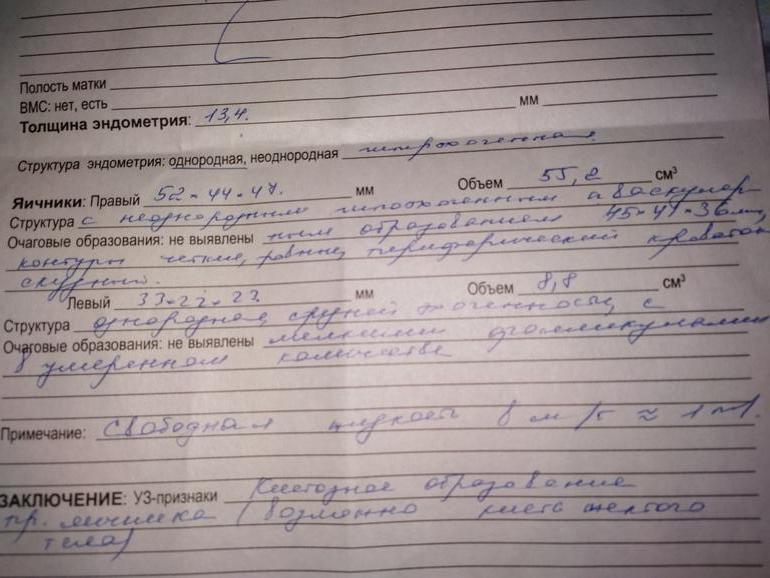 Полость матки
ВМС: нет, есть мм
Толщина эндометрия: 13,4.
Структура эндометрия: однородная, неоднородная гиперэхогенная.
Яичники: Правый 52×44×47. мм Объем 55,2 см³
Структура с неоднородным гипоэхогенным аваскуляр-
Очаговые образования: не выявлены ным образованием 45×41×36мм,
контуры четкие, ровные, периферический кровоток
скудный.
Левый 33×22×23 мм Объем 8,8 см³
Структура однородная, средней эхогенности, с
Очаговые образования: не выявлены мелкими фолликулами
в умеренном количестве
Примечание: Свободная жидкость в м/т ≈ 1 мл.
ЗАКЛЮЧЕНИЕ: УЗ-признаки Кистозное образование
пр. яичника (возможно киста желтого
тела)